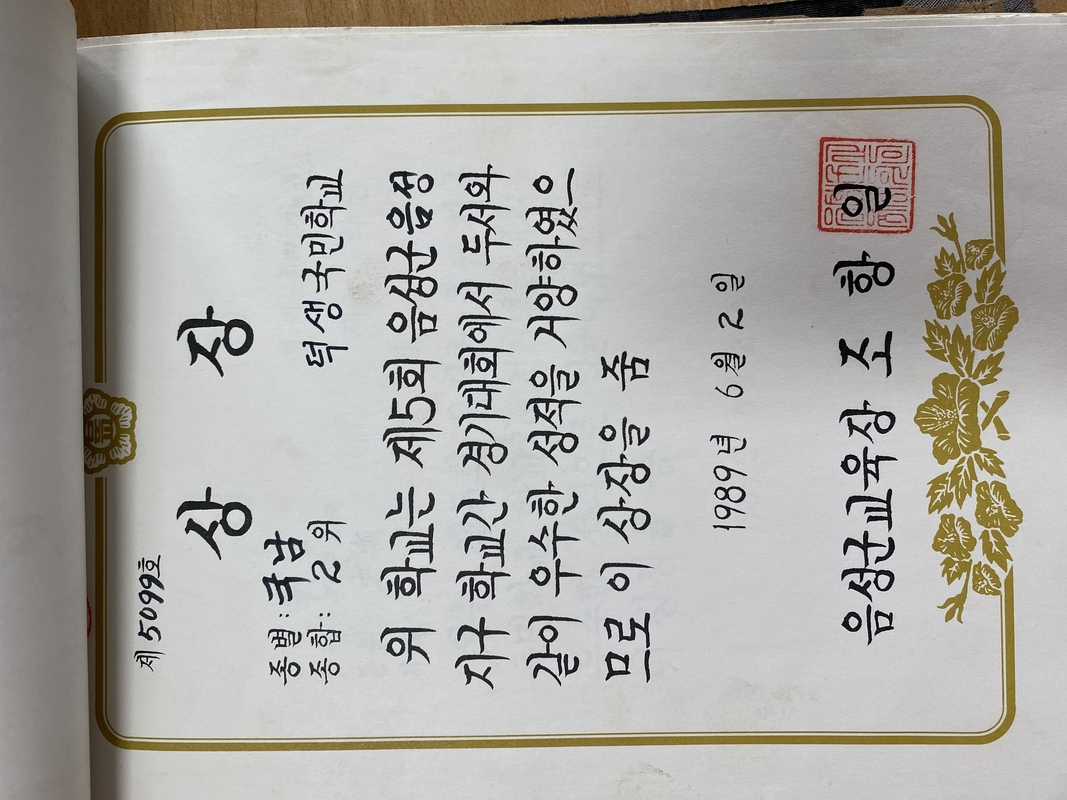 제 5099호
상 장
종별: 국남
종합: 2 위
덕생국민학교
위 학교는 제5회 음성군음성
지구 학교간 경기대회에서 두서와
같이 우수한 성적을 거양하였으
므로 이 상장을 줌
1989년 6월 2일
음성군교육장 조 항 일